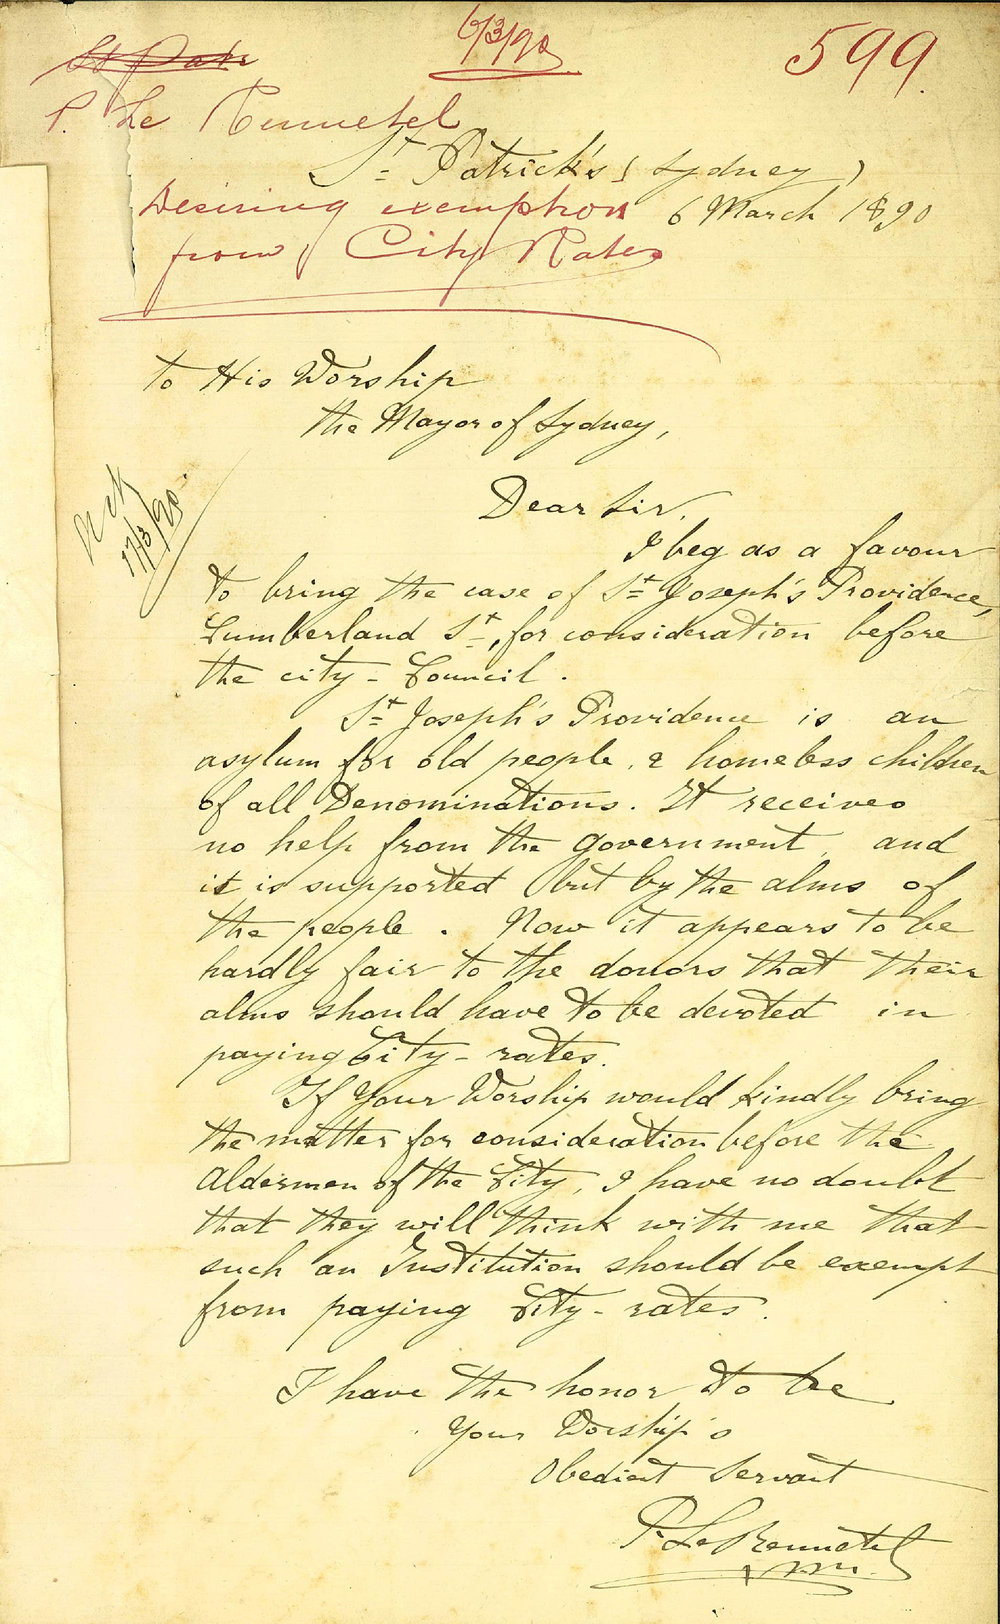 6/3/90
599
St Patr
P. Le Rennetel
St Patrick's (Sydney)
Desiring exemption
6 March 1890
from City Rates
To His Worship
the Mayor of Sydney,
17/3/90
Dear Sir,
I beg as a favour
to bring the case of St Joseph's Providence,
Cumberland St, for consideration before
the city-Council.
St Joseph's Providence is an
asylum for old people, & homeless children
of all Denominations. It receives
no help from the government, and
it is supported but by the alms of
the people. Now it appears to be
hardly fair to the donors that their
alms should have to be devoted in
paying City-rates.
If Your Worship would kindly bring
the matter for consideration before the
Aldermen of the City, I have no doubt
that they will think with me that
such an Institution should be exempt
from paying City-rates.
I have the honor to be
Your Worship's
Obedient Servant
P. Le Rennetel